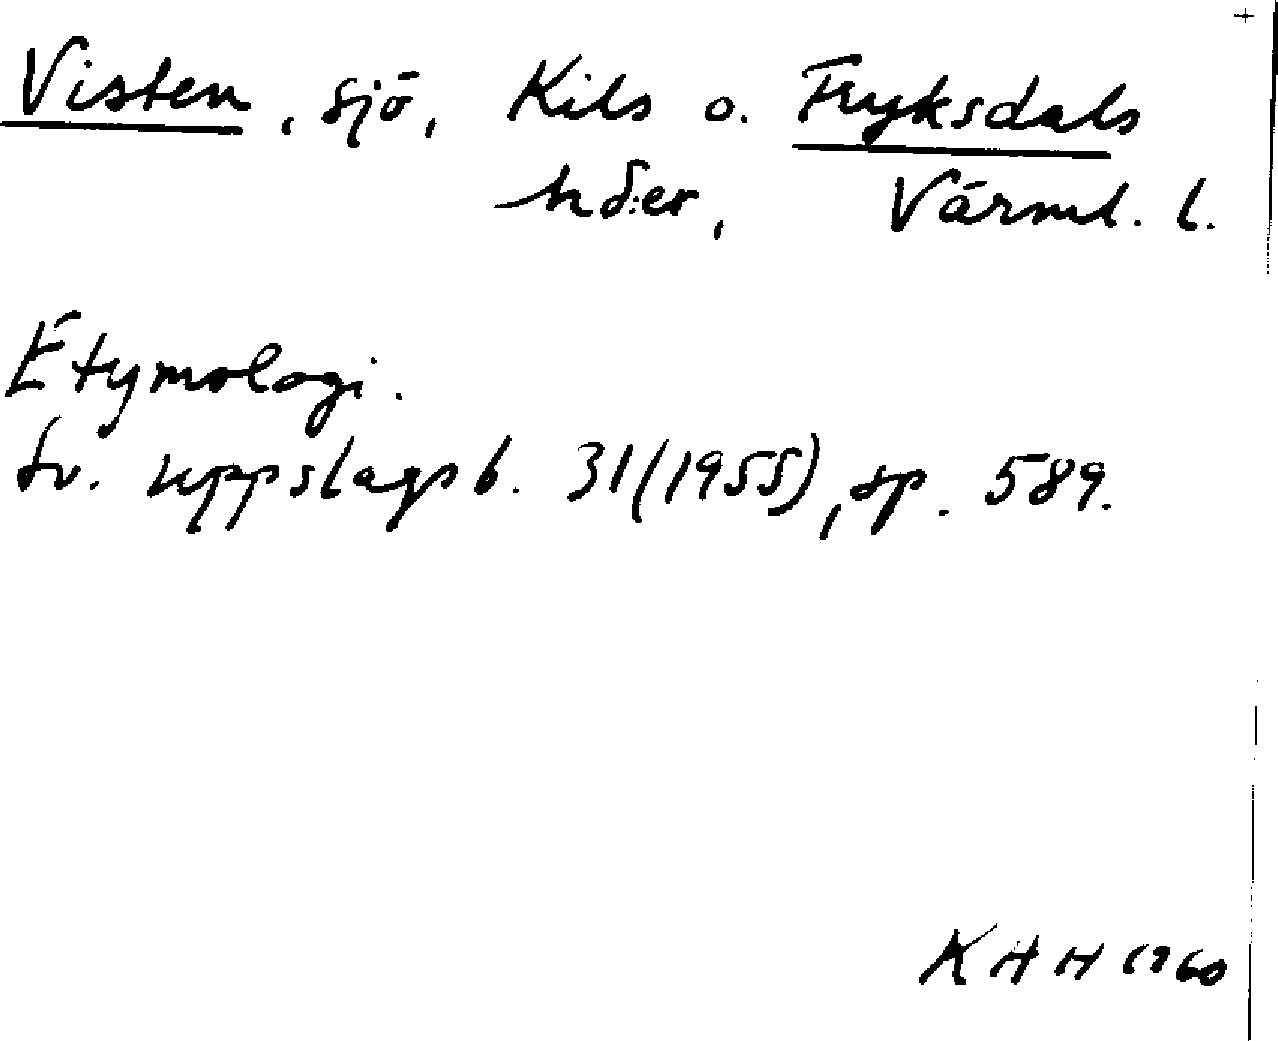 Visten, sjö, Kils o. Fryksdals
hd:er, Värml. l.
Etymologi.
Sv. uppslagsb. 31(1955), sp. 589.
KHH 1960